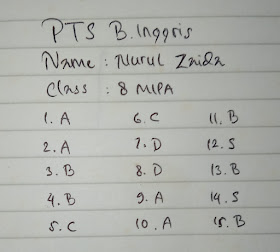 PTS B. Inggris
Name : Nurul Zaida
Class : 8 MIPA
1. A 6. C 11. B
2. A 7. D 12. S
3. B 8. D 13. B
4. B 9. A 14. S
5. C 10. A 15. B